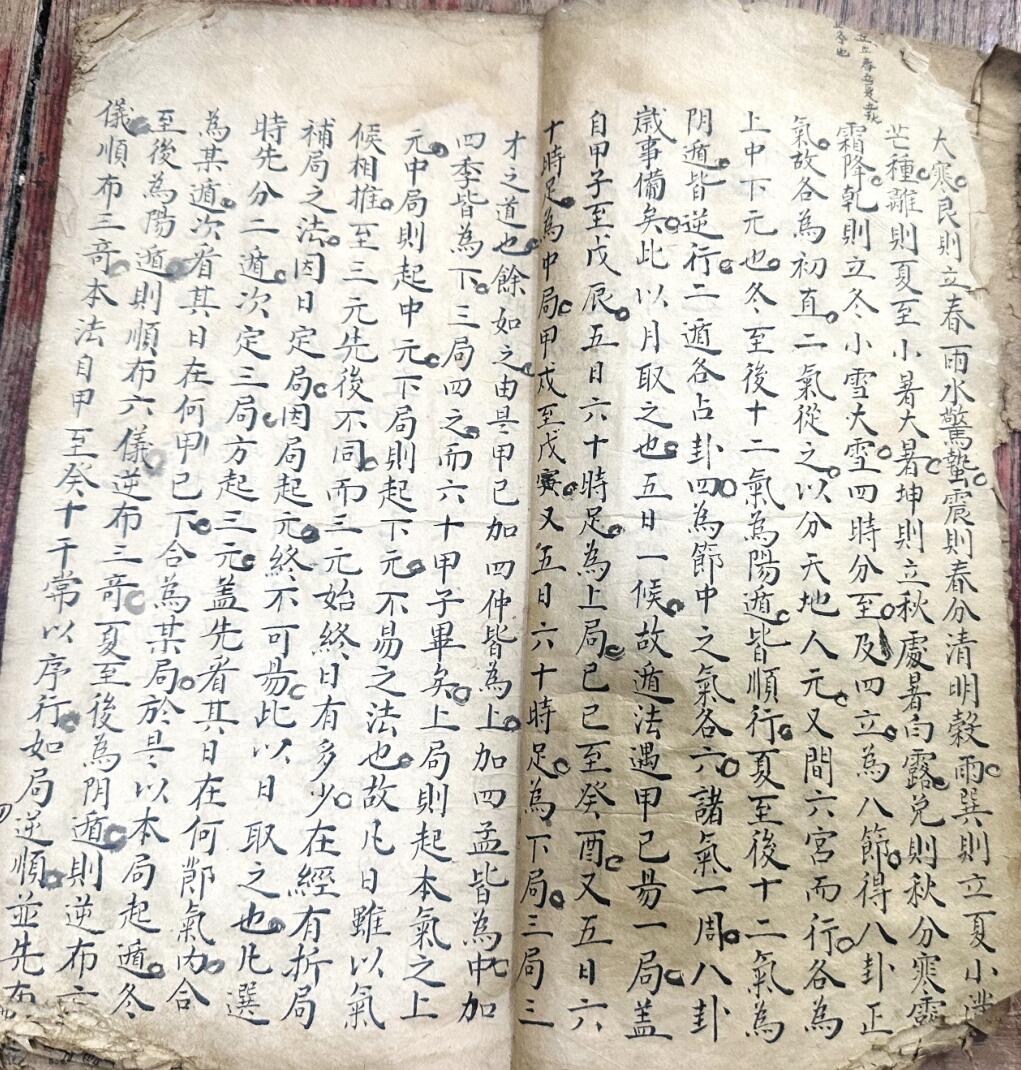 大寒艮則立春雨水驚蟄震則春分清明穀雨巽則立夏小滿
芒種離則夏至小暑大暑坤則立秋處暑白露兌則秋分寒露
霜降乾則立冬小雪大雪四時分至及四立為八節得八卦正
氣故各為初直二氣從之以分天地人元又間六宮而行各為
上中下元也冬至後十二氣為陽遁皆順行夏至後十二氣為
阴遁皆逆行二遁各占卦四為節中之氣各六諸氣一周八卦
歲事備矣此以月取之也五日一候故遁法遇甲己易一局盖
自甲子至戊辰五日六十時足為上局己巳至癸酉又五日六
十時足為中局甲戌至戊寅又五日六十時足為下局三局三
才之道也餘如之由是甲己加四仲皆為上加四孟皆為中加
四季皆為下三局四之而六十甲子畢矣上局則起本氣之上
元中局則起中元下局則起下元不易之法也故凡日雖以氣
候相推至三元先後不同而三元始終日有多少在經有折局
補局之法因日定局因局起元終不可易此以日取之也凡選
時先分二遁次定三局方起三元盖先看其日在何節氣内合
為某遁次看其日在何甲己下合為某局於是以本局起遁冬
至後為陽遁則順布六儀逆布三奇夏至後為阴遁則逆布六
儀順布三奇本法自甲至癸十干常以序行如局逆順並先布